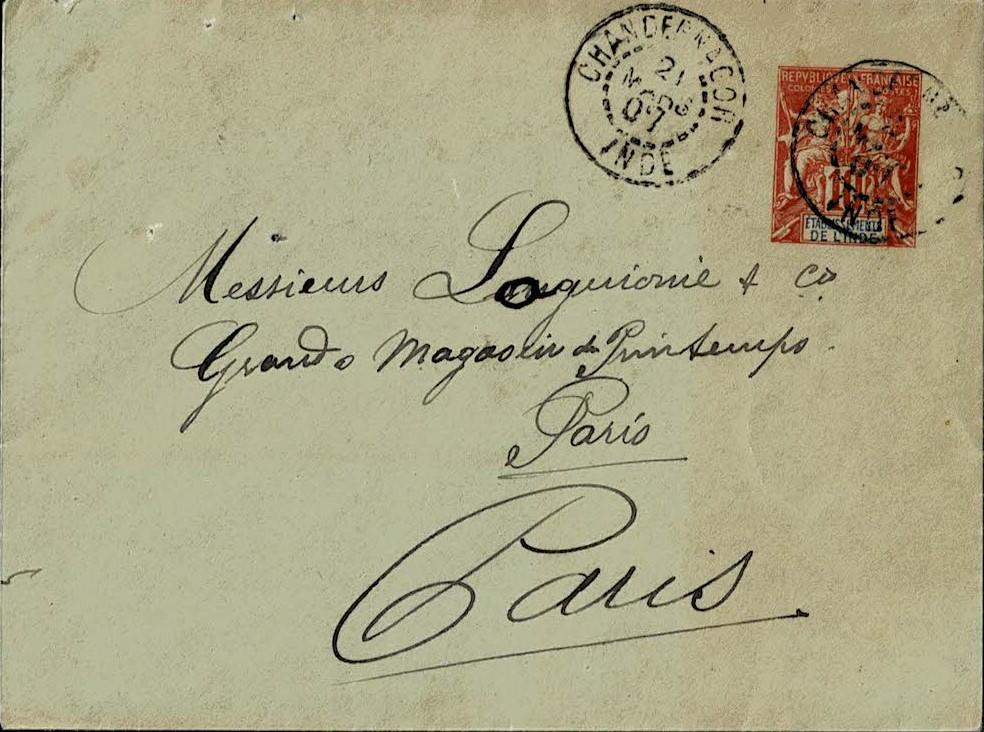 CHANDERNAGOR
21
MARS
07
INDE
REPUBLIQUE FRANCAISE
COLONIES POSTES
10
ETABLISSEMENTS
DE L'INDE
INDE
Messieurs Languionie & Co
Grands Magasin du Printemps
Paris
Paris